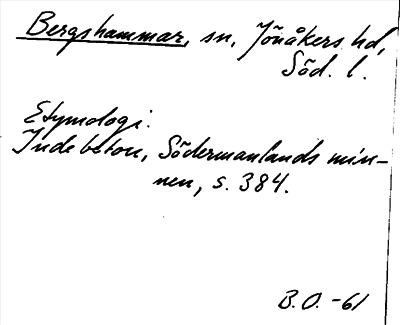 Bergshammar, sn, Jönåkers hd,
Söd. l.
Etymologi.
Indebetou, Södermanlands min-
nen, s. 384.
B.O. -61